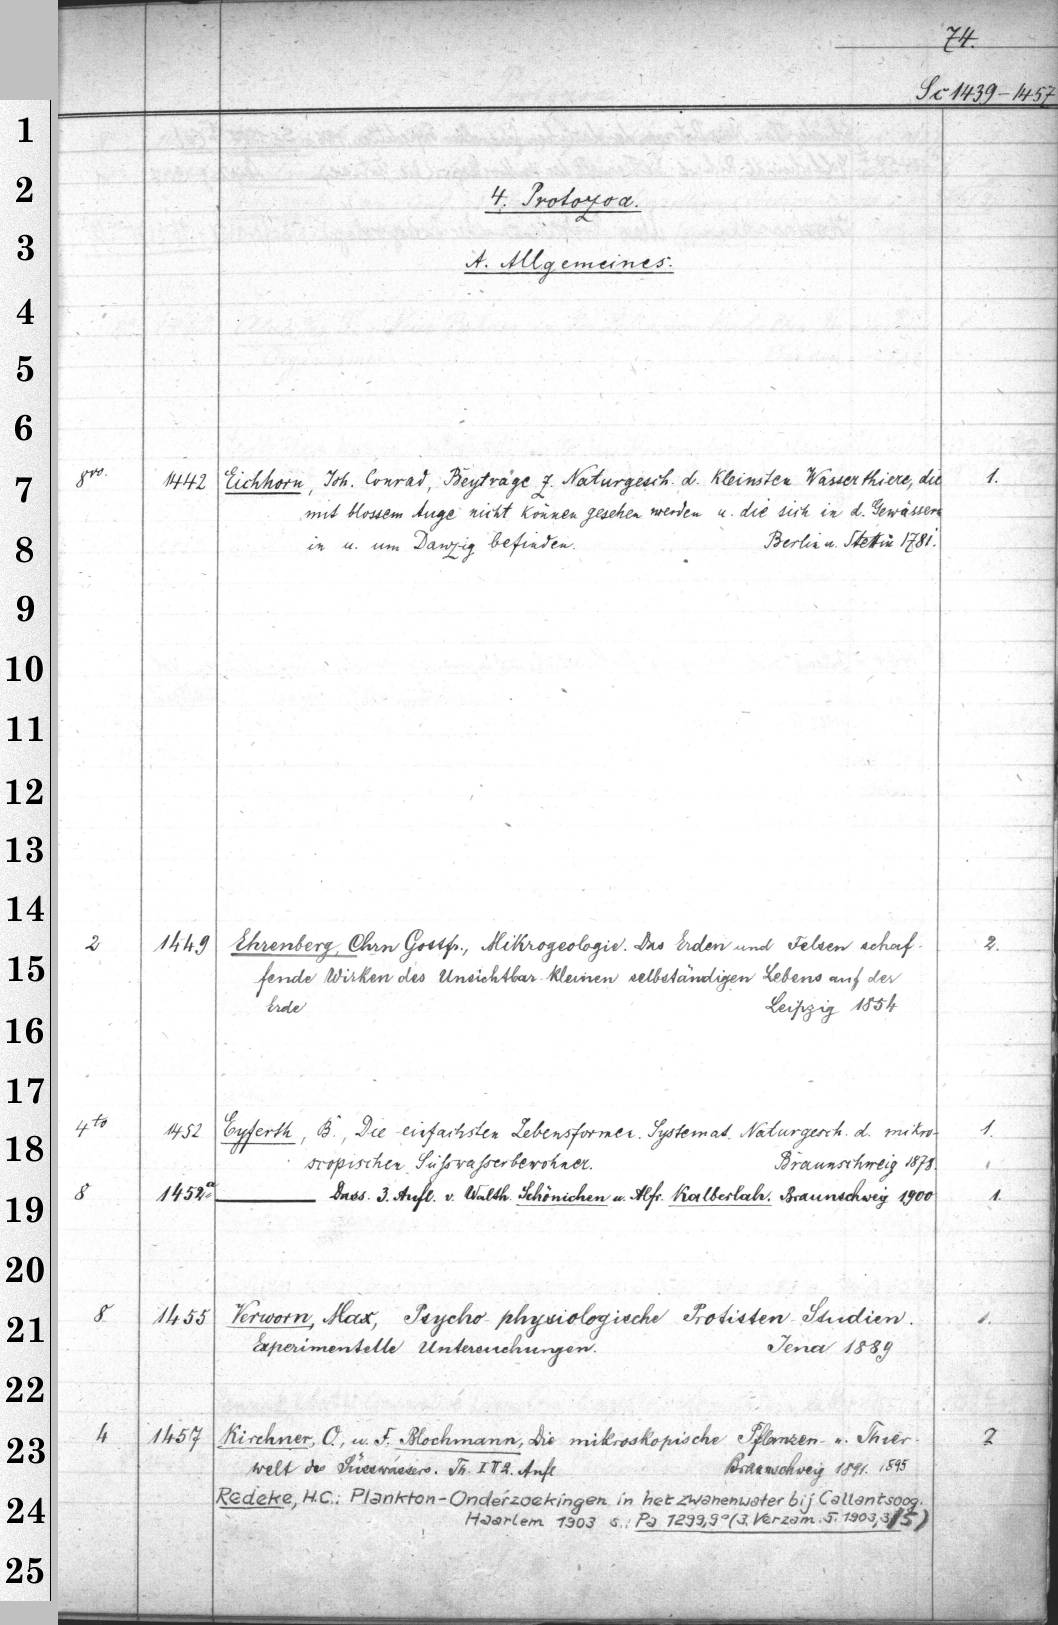 74.
Sc 1439-1457
4. Protozoa.
A. Allgemeines.
8vo. 1442 Eichhorn, Joh. Conrad, Beyträge z. Naturgesch. d. kleinsten Wasserthiere, die 1.
mit blossem Auge nicht können gesehen werden u. die sich in d. Gewässern
in u. um Danzig befinden. Berlin u. Stettin 1781.
2 1449 Ehrenberg, Chrn Gottfr., Mikrogeologie. Das Erden und Felsen schaf- 2.
fende Wirken des Unsichtbar kleinen selbständigen Lebens auf der
Erde Leipzig 1854
4to 1452 Eyferth, B., Die einfachsten Lebensformen. Systemat. Naturgesch. d. mikro- 1.
scopischen Süsswasserbewohner. Braunschweig 1878.
8 1452a Dass. 3. Aufl. v. Walth. Schönichen u. Alfr. Kalberlah. Braunschweig 1900 1.
8 1455 Verworn, Max, Psycho-physiologische Protisten-Studien. 1.
Experimentelle Untersuchungen. Jena 1889
4 1457 Kirchner, O., u. F. Blochmann, Die mikroskopische Pflanzen- u. Thier- 2
welt des Süsswassers. Th. I II 2. Aufl Braunschweig 1891. 1895
Redeke, H.C.: Plankton-Onderzoekingen in het zwanenwater bij Callantsoog.
Haarlem 1903 s.: Pa 1299,9° (3. Verzam. 5. 1903,3/5)
1
2
3
4
5
6
7
8
9
10
11
12
13
14
15
16
17
18
19
20
21
22
23
24
25